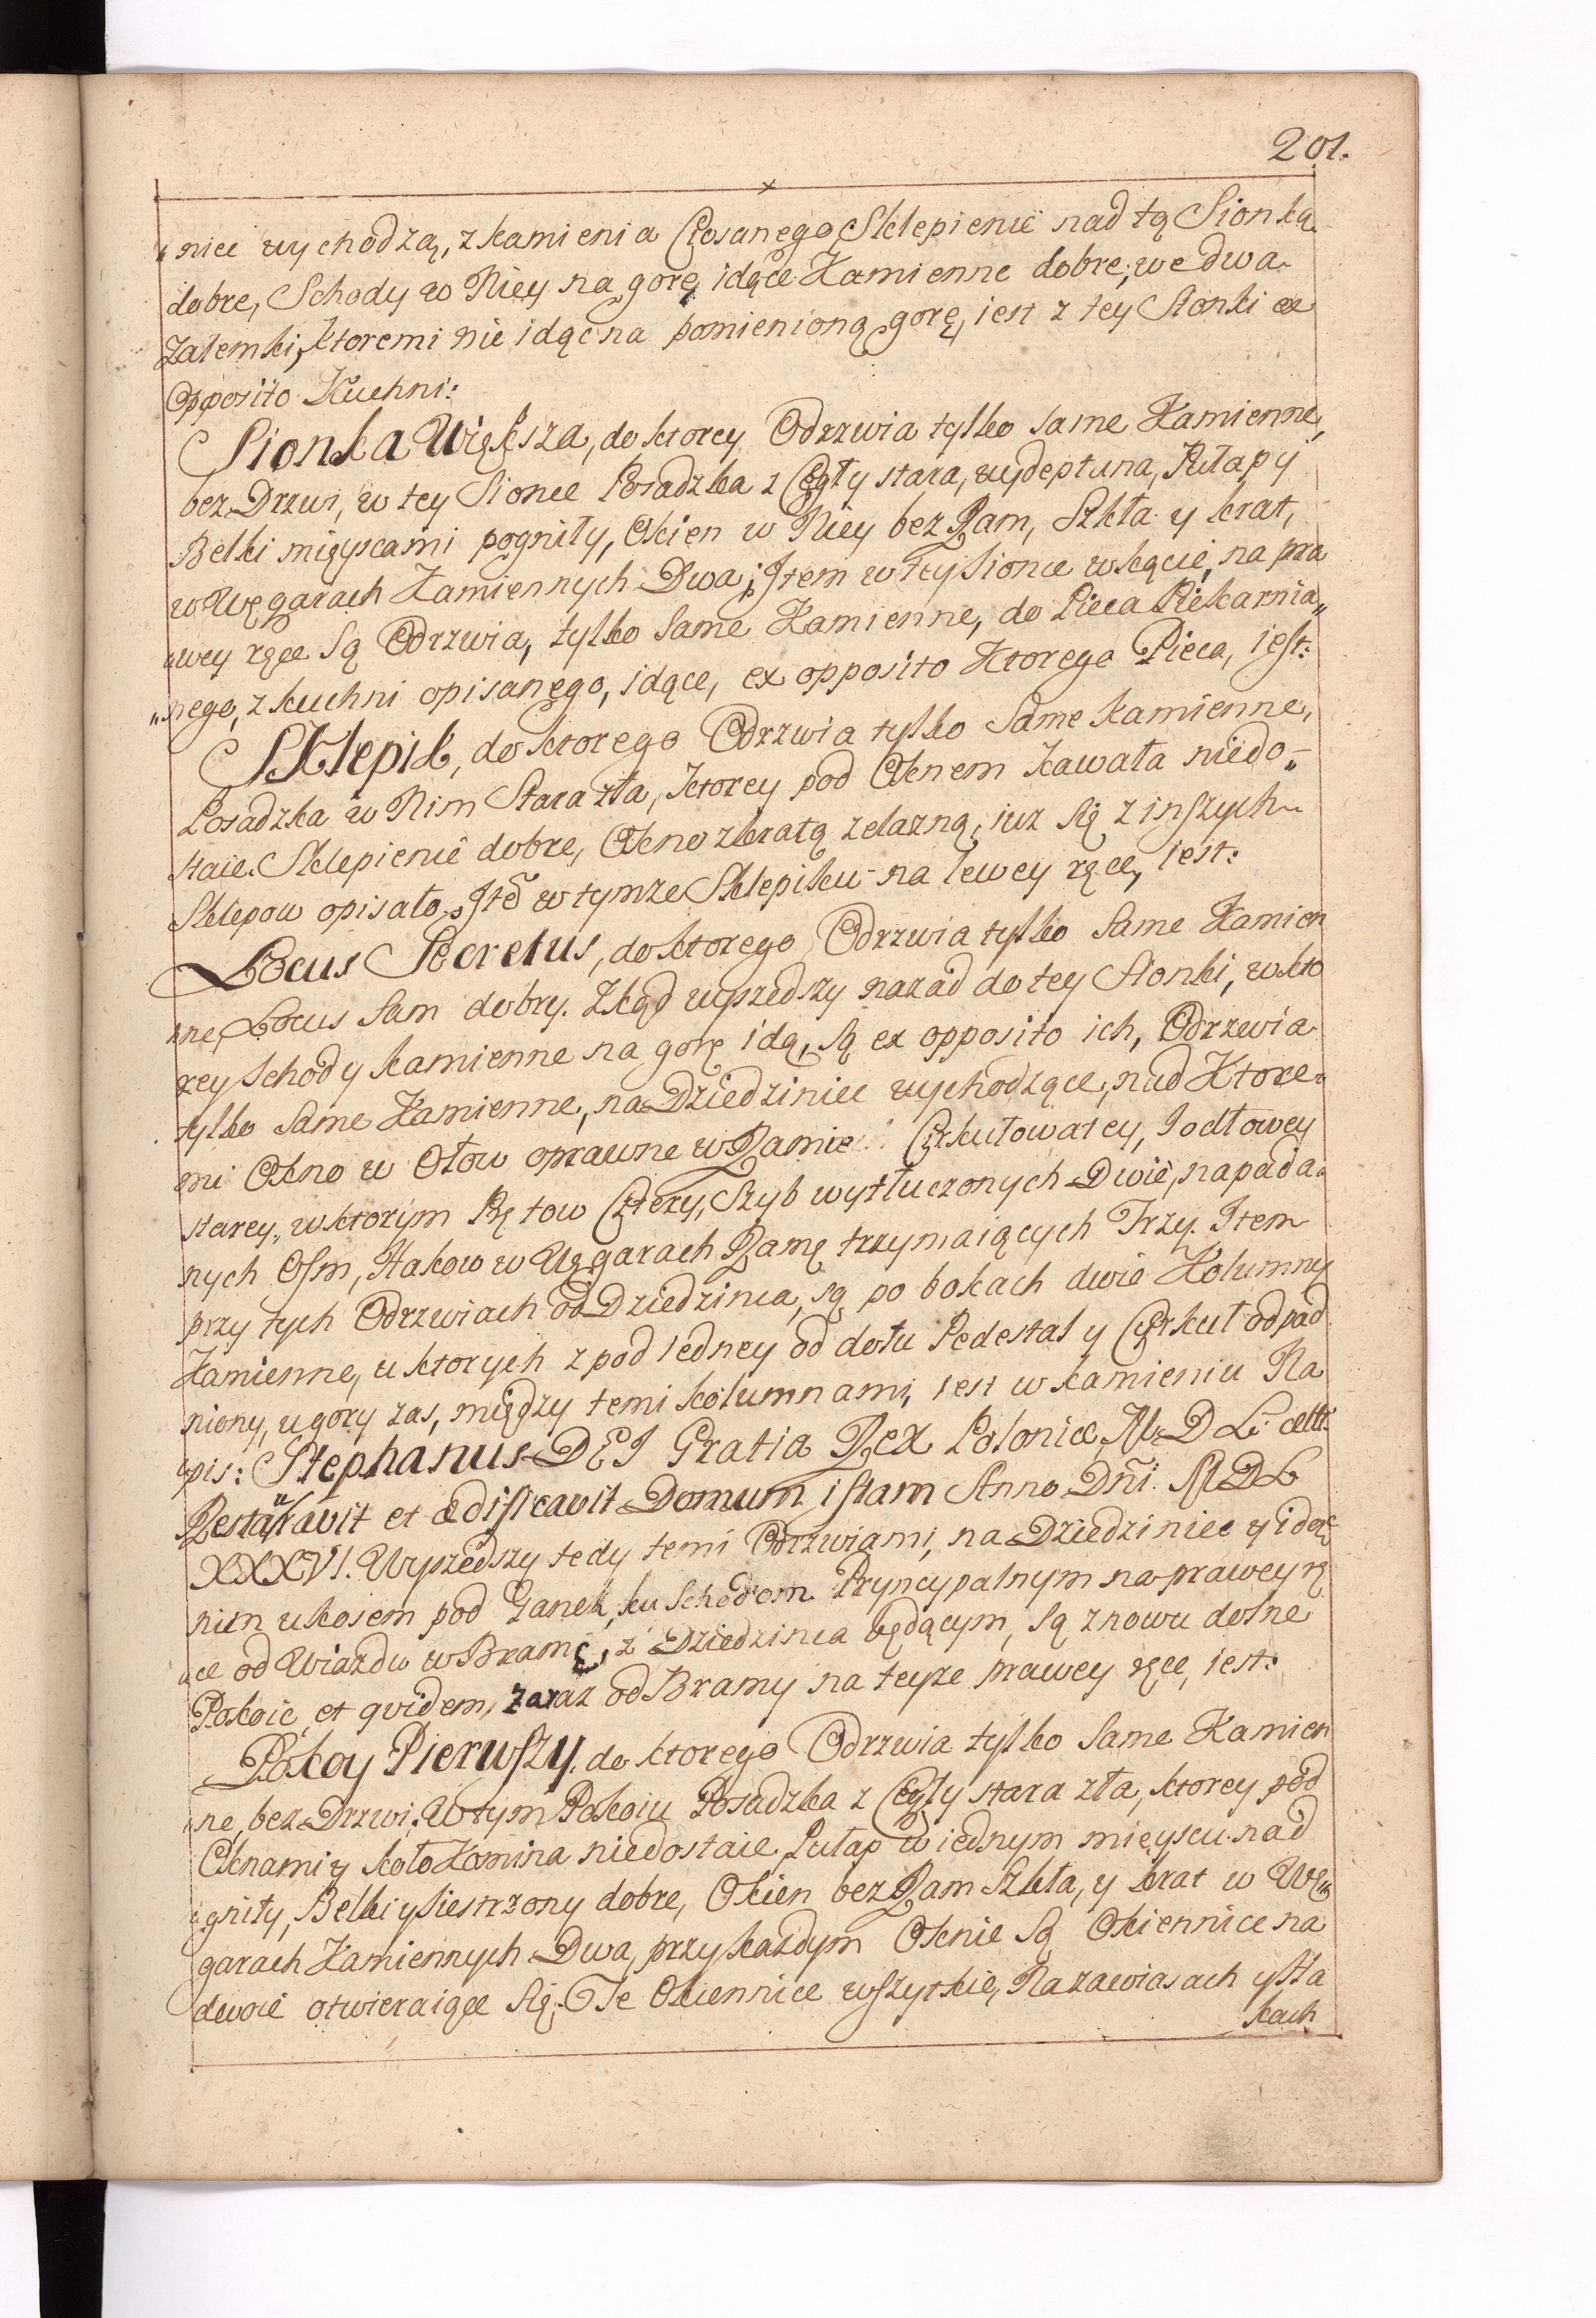 201.
„nice wychodzą, z kamienia Ciosanego, Sklepienie nad tą Sionką
dobre, Schody w Niey na gorę idące Kamienne dobre, we dwa
Załemki, ktoremi nie idąc na pomienioną gorę, iest z tey Sionki ex
Opposito Kuchni:
Sionka Większa, do ktorey Odrzwia tylko same Kamienne,
bez Drzwi, w tey Sionce Posadzka z Cegły stara, wydeptana, Pułap y
Belki mieyscami pogniły, Okien w Niey bez Ram, Szkła y krat,
w Węgarach Kamiennych Dwa; Item w tey Sionce w kącie, na pra
„wey ręce Są Odrzwia, tylko same Kamienne, do Pieca Piekarnia„
„nego, z kuchni opisanego, idące, ex opposito Ktorego Pieca, iest:
Sklepik, do ktorego Odrzwia tylko Same kamienne,
Posadzka w Nim Stara zła, ktorey pod Oknem kawała niedo„
staie. Sklepienie dobre, Okno z kratą zelazną, iuz się z inszych
Sklepow opisało, Itẽ w tymze Sklepiku na lewey ręce, iest:
Locus Secretus, do ktorego Odrzwia tylko Same Kamien
„ne, Locus Sam dobry. Zkąd wyszedszy nazad do tey Sionki, w kto
rey Schody kamienne na gorę idą, Są ex opposito ich, Odrzwia
tylko Same Kamienne, na Dziedziniec wychodzące, nad Ktore„
mi Okno w Ołow oprawne w Ramie Cyrkułowatey, Iodłowey
starey, w ktorym Prętow Cztery, Szyb wytłuczonych Dwie, napada„
nych Osm, Hakow w Węgarach Ramę trzymaiących Trzy. Item
przy tych Odrzwiach od Dziedzinca, są po bokach dwie Kolumny
Kamienne, u ktorych z pod iedney od dołu Pedestal y Cyrkuł odpad
niony, u gory zas, między temi kolumnami, iest w kamieniu Na
„pis: Stephanus DEI Gratia Rex Poloniæ, M. D. L. ettc
Restauravit et ædificavit Domum istam Anno Dñi. M D L
XXXVI. Wyszedszy tedy temi Odrzwiami, na Dziedziniec y idąc
nim ukosem pod Ganek, ku Schodom Pryncypalnym na prawey rę
„ce od Wiazdu w Bramę, z Dziedzinca będącym, Są znowu dolne
Pokoie, et qvidem, zaraz od Bramy na teyze prawey ręce, iest:
Pokoy Pierwszy, do ktorego Odrzwia tylko Same Kamien
„ne, bez Drzwi. W tym Pokoiu Posadzka z Cegły stara zła, ktorey pod
Oknami y koło Komina niedostaie. Pułap w iednym mieyscu nad
„gniły, Belki y Siestrzony dobre, Okien bez Ram Szkła, y krat w Wę„
garach Kamiennych Dwa, przy kazdym Oknie Są Okiennice na
dwoie otwieraiące Się. Te Okiennice wszytkie, Na zawiasach y Ha
kach